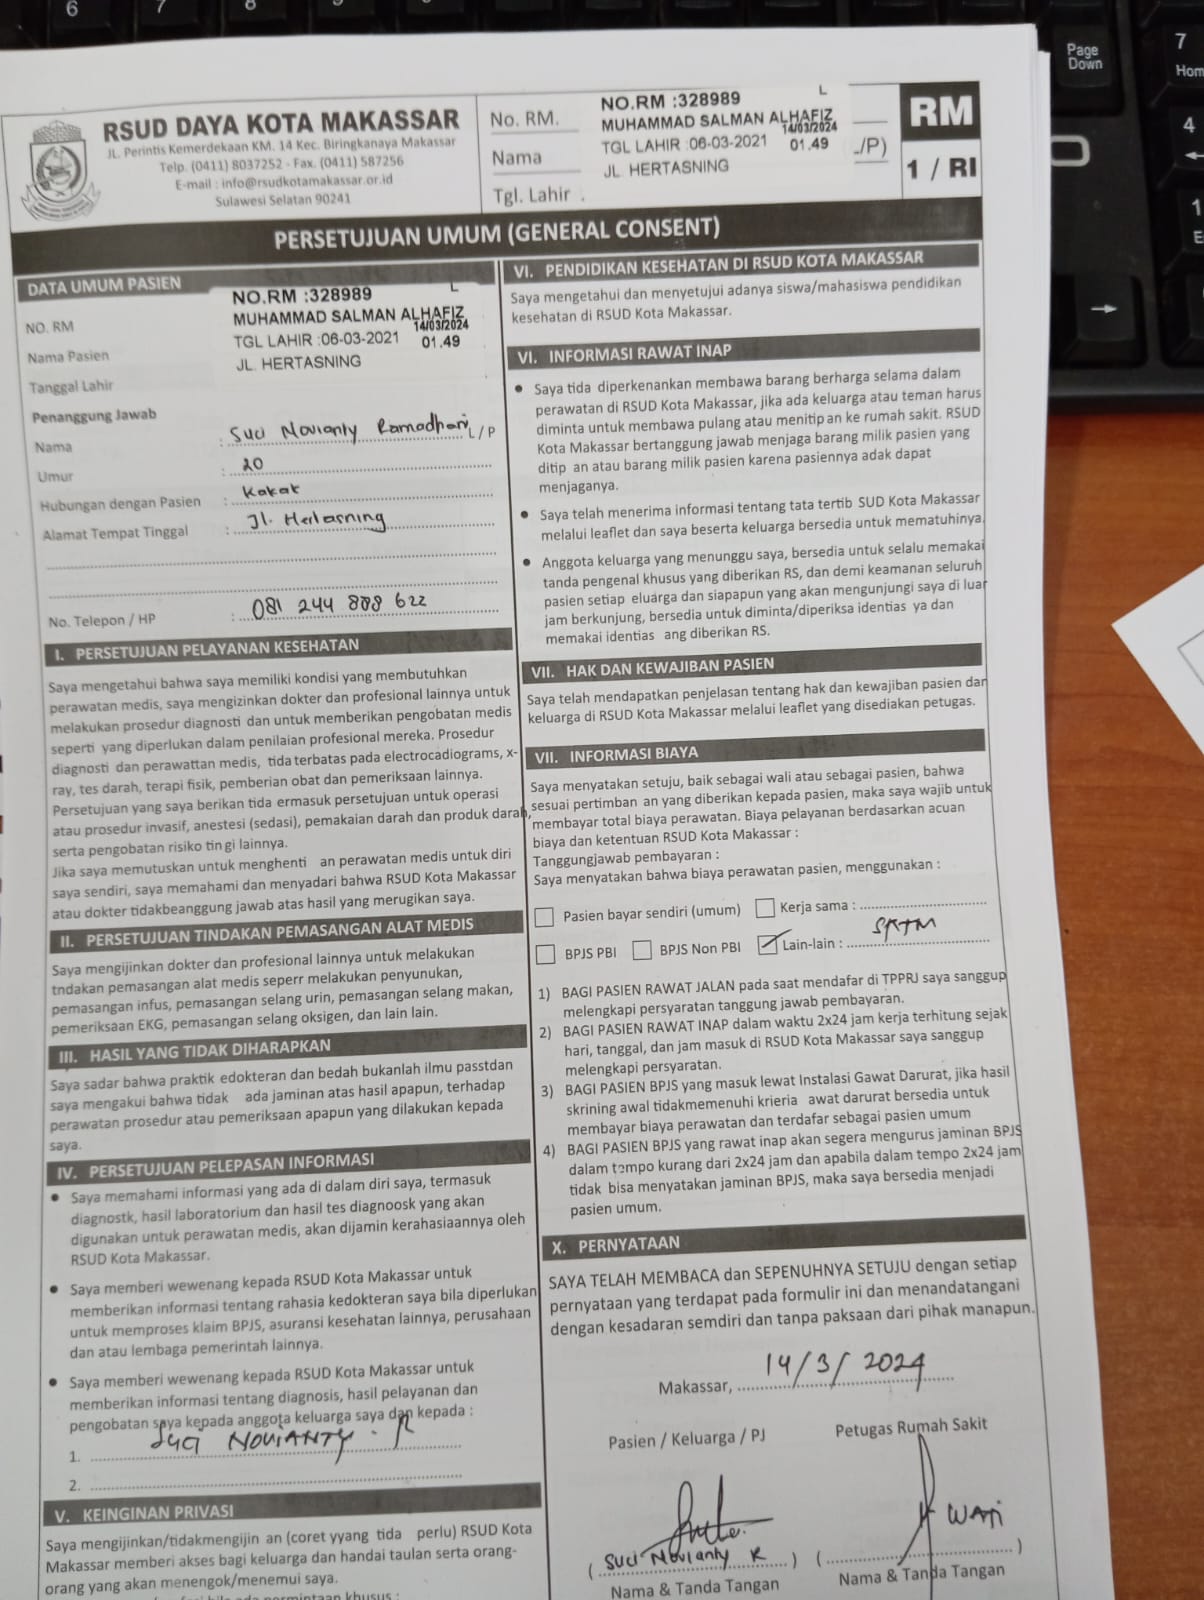 6
7
8
9
0
Page
Down
7
Hom
4
1
E
RSUD DAYA KOTA MAKASSAR
JL. Perintis Kemerdekaan KM. 14 Kec. Biringkanaya Makassar
Telp. (0411) 8037252 - Fax. (0411) 587256
E-mail : info@rsudkotamakassar.or.id
Sulawesi Selatan 90241
No. RM.
Nama
Tgl. Lahir .
NO.RM :328989 L
MUHAMMAD SALMAN ALHAFIZ
14/03/2024
TGL LAHIR :06-03-2021 01.49
JL. HERTASNING
/P)
RM
1 / RI
PERSETUJUAN UMUM (GENERAL CONSENT)
DATA UMUM PASIEN
NO.RM :328989 L
MUHAMMAD SALMAN ALHAFIZ
14/03/2024
TGL LAHIR :06-03-2021 01.49
JL. HERTASNING
NO. RM
Nama Pasien
Tanggal Lahir
Penanggung Jawab
Nama : Suci Novianty Ramadhani L / P
Umur : 20
Hubungan dengan Pasien : Kakak
Alamat Tempat Tinggal : Jl. Hertasning
No. Telepon / HP : 081 244 888 622
I. PERSETUJUAN PELAYANAN KESEHATAN
Saya mengetahui bahwa saya memiliki kondisi yang membutuhkan
perawatan medis, saya mengizinkan dokter dan profesional lainnya untuk
melakukan prosedur diagnosti dan untuk memberikan pengobatan medis
seperti yang diperlukan dalam penilaian profesional mereka. Prosedur
diagnosti dan perawattan medis, tida terbatas pada electrocadiograms, x-
ray, tes darah, terapi fisik, pemberian obat dan pemeriksaan lainnya.
Persetujuan yang saya berikan tida ermasuk persetujuan untuk operasi
atau prosedur invasif, anestesi (sedasi), pemakaian darah dan produk darah,
serta pengobatan risiko tin gi lainnya.
Jika saya memutuskan untuk menghenti an perawatan medis untuk diri
saya sendiri, saya memahami dan menyadari bahwa RSUD Kota Makassar
atau dokter tidakbeanggung jawab atas hasil yang merugikan saya.
II. PERSETUJUAN TINDAKAN PEMASANGAN ALAT MEDIS
Saya mengijinkan dokter dan profesional lainnya untuk melakukan
tndakan pemasangan alat medis seperr melakukan penyunukan,
pemasangan infus, pemasangan selang urin, pemasangan selang makan,
pemeriksaan EKG, pemasangan selang oksigen, dan lain lain.
III. HASIL YANG TIDAK DIHARAPKAN
Saya sadar bahwa praktik edokteran dan bedah bukanlah ilmu passtdan
saya mengakui bahwa tidak ada jaminan atas hasil apapun, terhadap
perawatan prosedur atau pemeriksaan apapun yang dilakukan kepada
saya.
IV. PERSETUJUAN PELEPASAN INFORMASI
• Saya memahami informasi yang ada di dalam diri saya, termasuk
diagnostk, hasil laboratorium dan hasil tes diagnoosk yang akan
digunakan untuk perawatan medis, akan dijamin kerahasiaannya oleh
RSUD Kota Makassar.
• Saya memberi wewenang kepada RSUD Kota Makassar untuk
memberikan informasi tentang rahasia kedokteran saya bila diperlukan
untuk memproses klaim BPJS, asuransi kesehatan lainnya, perusahaan
dan atau lembaga pemerintah lainnya.
• Saya memberi wewenang kepada RSUD Kota Makassar untuk
memberikan informasi tentang diagnosis, hasil pelayanan dan
pengobatan saya kepada anggota keluarga saya dan kepada :
1. Suci NOVIANTY . R
2.
V. KEINGINAN PRIVASI
Saya mengijinkan/tidakmengijin an (coret yyang tida perlu) RSUD Kota
Makassar memberi akses bagi keluarga dan handai taulan serta orang-
orang yang akan menengok/menemui saya.
VI. PENDIDIKAN KESEHATAN DI RSUD KOTA MAKASSAR
Saya mengetahui dan menyetujui adanya siswa/mahasiswa pendidikan
kesehatan di RSUD Kota Makassar.
VI. INFORMASI RAWAT INAP
• Saya tida diperkenankan membawa barang berharga selama dalam
perawatan di RSUD Kota Makassar, jika ada keluarga atau teman harus
diminta untuk membawa pulang atau menitip an ke rumah sakit. RSUD
Kota Makassar bertanggung jawab menjaga barang milik pasien yang
ditip an atau barang milik pasien karena pasiennya adak dapat
menjaganya.
• Saya telah menerima informasi tentang tata tertib SUD Kota Makassar
melalui leaflet dan saya beserta keluarga bersedia untuk mematuhinya.
• Anggota keluarga yang menunggu saya, bersedia untuk selalu memakai
tanda pengenal khusus yang diberikan RS, dan demi keamanan seluruh
pasien setiap eluarga dan siapapun yang akan mengunjungi saya di luar
jam berkunjung, bersedia untuk diminta/diperiksa identias ya dan
memakai identias ang diberikan RS.
VII. HAK DAN KEWAJIBAN PASIEN
Saya telah mendapatkan penjelasan tentang hak dan kewajiban pasien dan
keluarga di RSUD Kota Makassar melalui leaflet yang disediakan petugas.
VII. INFORMASI BIAYA
Saya menyatakan setuju, baik sebagai wali atau sebagai pasien, bahwa
sesuai pertimban an yang diberikan kepada pasien, maka saya wajib untuk
membayar total biaya perawatan. Biaya pelayanan berdasarkan acuan
biaya dan ketentuan RSUD Kota Makassar :
Tanggungjawab pembayaran :
Saya menyatakan bahwa biaya perawatan pasien, menggunakan :
Pasien bayar sendiri (umum) Kerja sama :
BPJS PBI BPJS Non PBI Lain-lain : SKTM
1) BAGI PASIEN RAWAT JALAN pada saat mendafar di TPPRJ saya sanggup
melengkapi persyaratan tanggung jawab pembayaran.
2) BAGI PASIEN RAWAT INAP dalam waktu 2x24 jam kerja terhitung sejak
hari, tanggal, dan jam masuk di RSUD Kota Makassar saya sanggup
melengkapi persyaratan.
3) BAGI PASIEN BPJS yang masuk lewat Instalasi Gawat Darurat, jika hasil
skrining awal tidakmemenuhi krieria awat darurat bersedia untuk
membayar biaya perawatan dan terdafar sebagai pasien umum
4) BAGI PASIEN BPJS yang rawat inap akan segera mengurus jaminan BPJS
dalam tempo kurang dari 2x24 jam dan apabila dalam tempo 2x24 jam
tidak bisa menyatakan jaminan BPJS, maka saya bersedia menjadi
pasien umum.
X. PERNYATAAN
SAYA TELAH MEMBACA dan SEPENUHNYA SETUJU dengan setiap
pernyataan yang terdapat pada formulir ini dan menandatangani
dengan kesadaran semdiri dan tanpa paksaan dari pihak manapun.
Makassar, 14/3/2024
Pasien / Keluarga / PJ
Petugas Rumah Sakit
(Suci Novianty R)
WATI
Nama & Tanda Tangan
Nama & Tanda Tangan